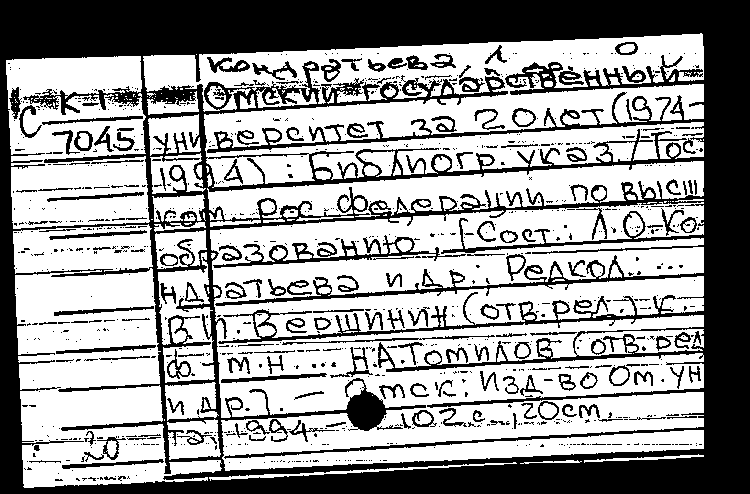 Кондратьева, Л. О
Омский государственный
С К1
7045
университет за 20 лет (1974-
1994) : Библиогр. указ. / Гос.
ком. Рос. федерации по высш.
образованию ; [Сост.: Л.О. Ко-
ндратьева и др.; Редкол.: ...
В.И. Вершинин (отв. ред.) к.
ф.-м.н. ... Н.А. Томилов (отв. ред
и др.]. — Омск: Изд-во Ом. ун
та, 1994. — 102 с. ; 20 см.
20